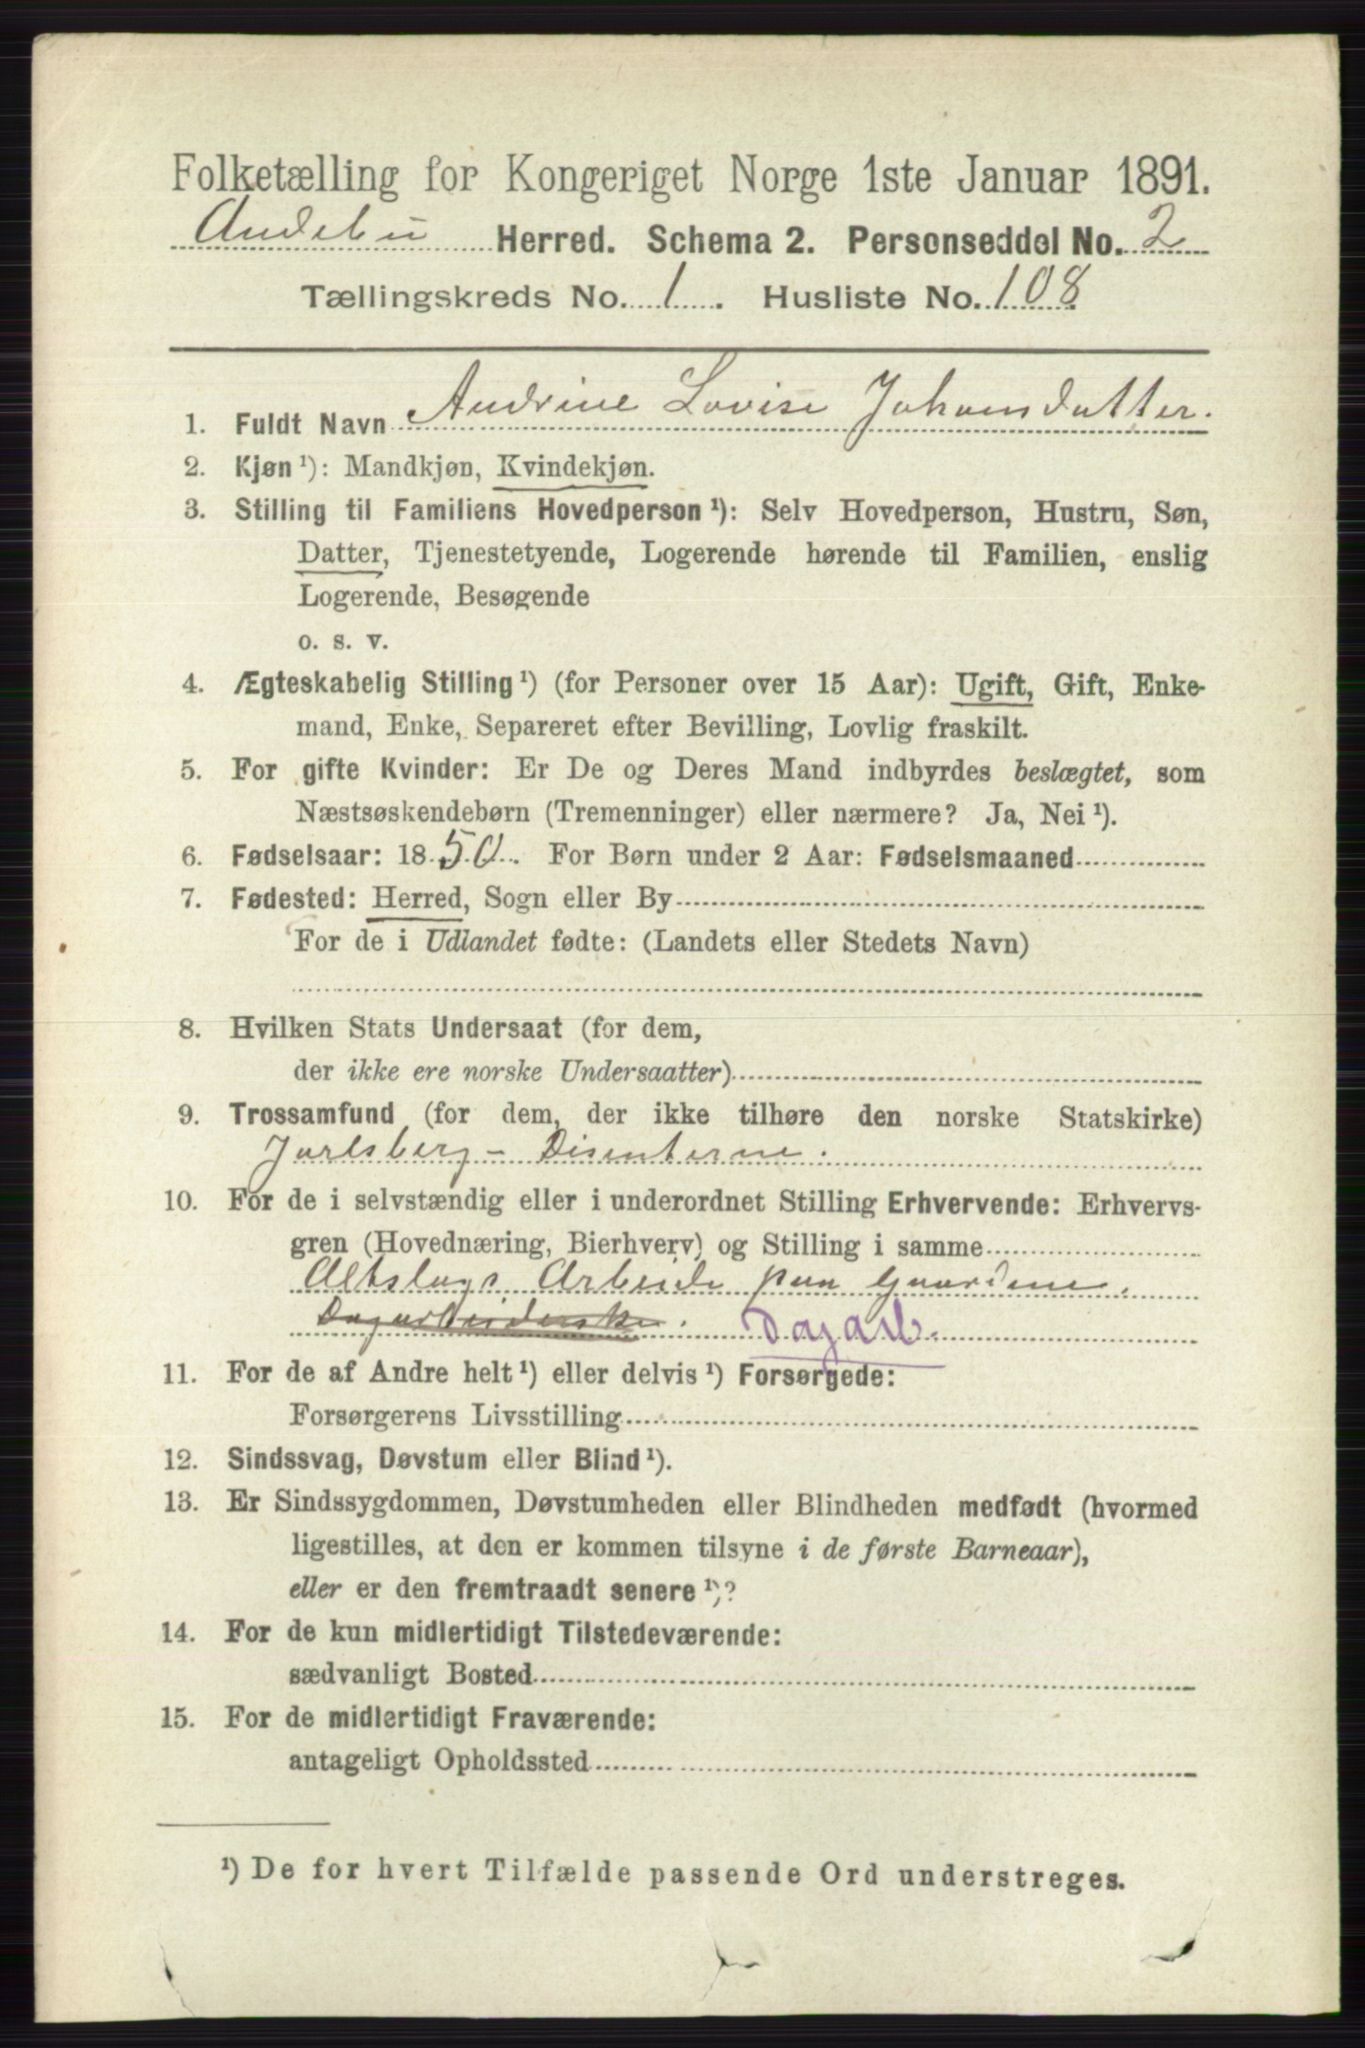 Folketælling for Kongeriget Norge 1ste Januar 1891.
Andebu Herred. Schema 2. Personseddel No. 2
Tællingskreds No. 1. Husliste No. 108
1. Fuldt Navn Andrine Lovise Johansdatter.
2. Kjøn ¹): Mandkjøn, Kvindekjøn.
3. Stilling til Familiens Hovedperson ¹): Selv Hovedperson, Hustru, Søn,
Datter, Tjenestetyende, Logerende hørende til Familien, enslig
Logerende, Besøgende
o. s. v.
4. Ægteskabelig Stilling ¹) (for Personer over 15 Aar): Ugift, Gift, Enke-
mand, Enke, Separeret efter Bevilling, Lovlig fraskilt.
5. For gifte Kvinder: Er De og Deres Mand indbyrdes beslægtet, som
Næstsøskendebørn (Tremenninger) eller nærmere? Ja, Nei ¹).
6. Fødselsaar: 1850. For Børn under 2 Aar: Fødselsmaaned
7. Fødested: Herred, Sogn eller By
For de i Udlandet fødte: (Landets eller Stedets Navn)
8. Hvilken Stats Undersaat (for dem,
der ikke ere norske Undersaatter)
9. Trossamfund (for dem, der ikke tilhøre den norske Statskirke)
Jarlsberg - Disenterne.
10. For de i selvstændig eller i underordnet Stilling Erhvervende: Erhvervs-
gren (Hovednæring, Bierhverv) og Stilling i samme
Altslags Arbeide paa Gaardene.
Dagarbeiderske. Dagarb.
11. For de af Andre helt ¹) eller delvis ¹) Forsørgede:
Forsørgerens Livsstilling
12. Sindssvag, Døvstum eller Blind ¹).
13. Er Sindssygdommen, Døvstumheden eller Blindheden medfødt (hvormed
ligestilles, at den er kommen tilsyne i de første Barneaar),
eller er den fremtraadt senere ¹)?
14. For de kun midlertidigt Tilstedeværende:
sædvanligt Bosted
15. For de midlertidigt Fraværende:
antageligt Opholdssted
¹) De for hvert Tilfælde passende Ord understreges.